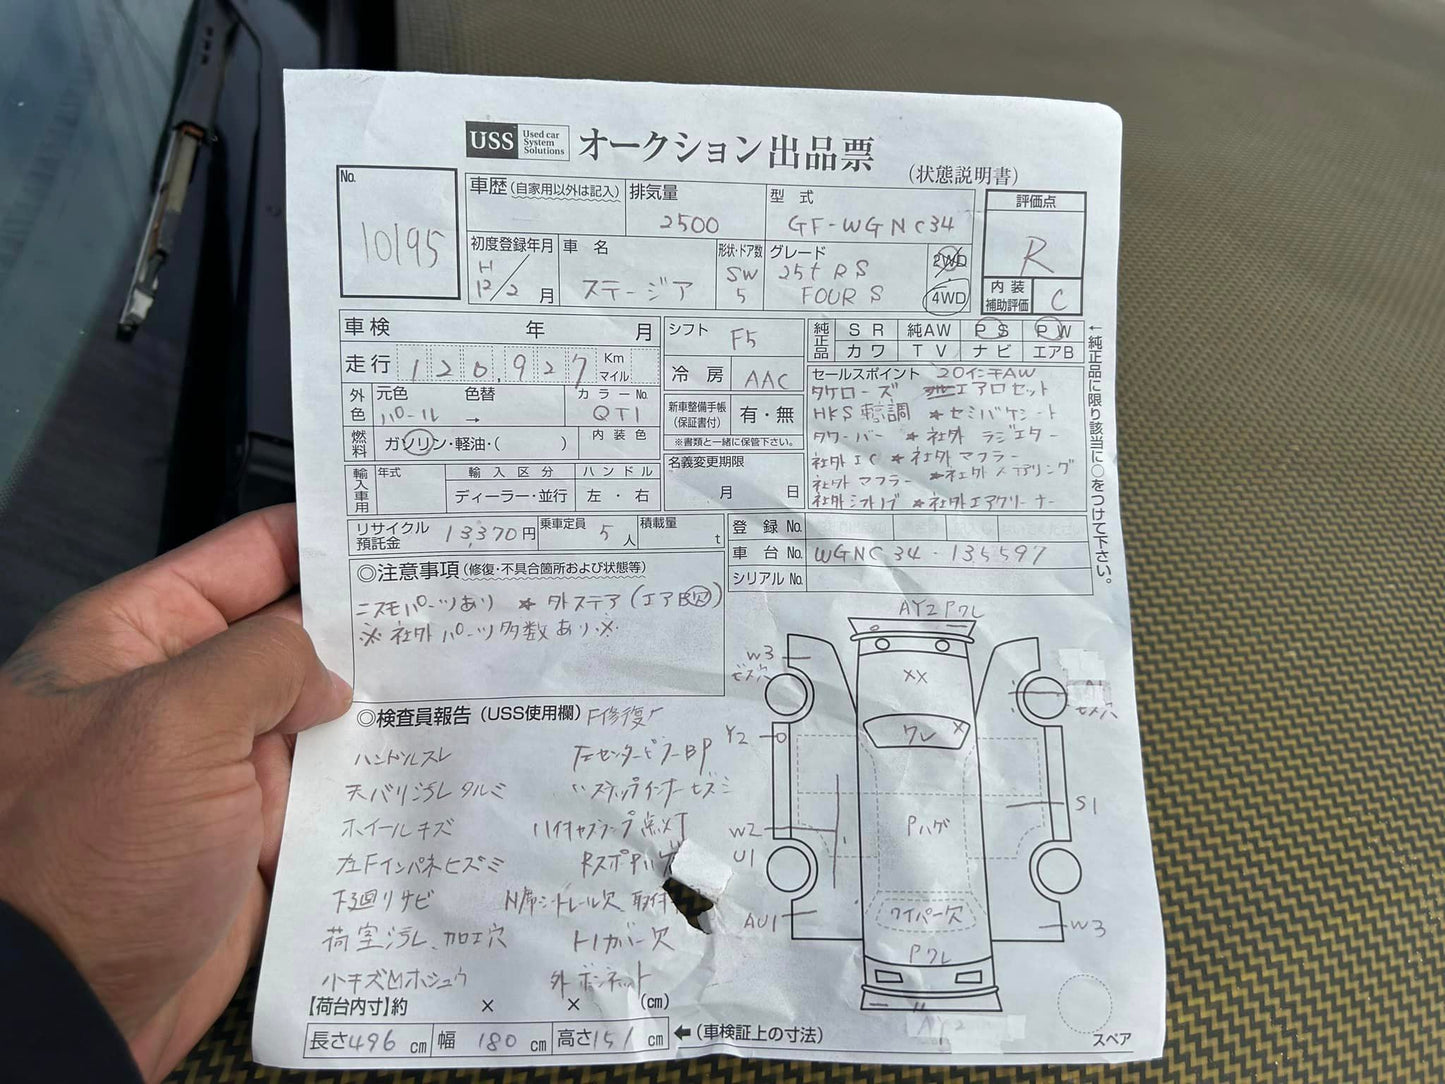 USS Used car System Solutions オークション 出品票
(状態説明書)
No.
10195
車歴 (自家用以外は記入) 排気量 型式
2500 GF-WGNC34
評価点
R
内装補助評価 C
初度登録年月 車名 形状・ドア数 グレード
H12/2月 ステージア SW 5 25t RS FOUR S 2WD 4WD
車検 年 月
走行 120,927 Km マイル
シフト F5
冷房 AAC
純正品 SR 純AW PS PW
カワ TV ナビ エアB
←純正品に限り該当に○をつけて下さい。
外色 元色 色替 カラーNo.
パール → QT1
燃料 ガソリン・軽油・( ) 内装色
新車整備手帳 (保証書付) 有・無
※書類と一緒に保管下さい。
セールスポイント 20インチAW
タケローズ エアロセット
HKS車高調 ★セミバケシート
タワーバー ★社外ラジエター
社外IC ★社外マフラー
社外マフラー ★社外ステアリング
社外シフトノブ ★社外エアクリーナー
輸入車用 年式 輸入区分 ハンドル
ディーラー・並行 左・右
名義変更期限
月 日
リサイクル預託金 13,370円 乗車定員 5人 積載量 t
登録No.
車台No. WGNC34-135597
シリアルNo.
◎注意事項 (修復・不具合箇所および状態等)
ニスモパーツあり ★外ステア(エアB欠)
※社外パーツ多数あり※
◎検査員報告 (USS使用欄) F修復ケ
ハンドルスレ 左センターピラーBP
天バリ汚レタルミ 〃ステップインナーヒズミ
ホイールキズ ハイキャスランプ点灯
左Fインパネヒズミ RスポPハゲ
下廻りサビ N席シートレール欠、取付
荷室汚レ、加工穴 トノカバー欠
小キズ凹ホシュウ 外ボンネット
AY2 Pワレ
W3
ビス穴
XX
A1
ビス穴
ワレ X
Y2
S1
W2
Pハゲ
U1
AU1
ワイパー欠
W3
Pワレ
AY2
スペア
【荷台内寸】約 × × (cm)
長さ496cm 幅180cm 高さ151cm ←(車検証上の寸法)